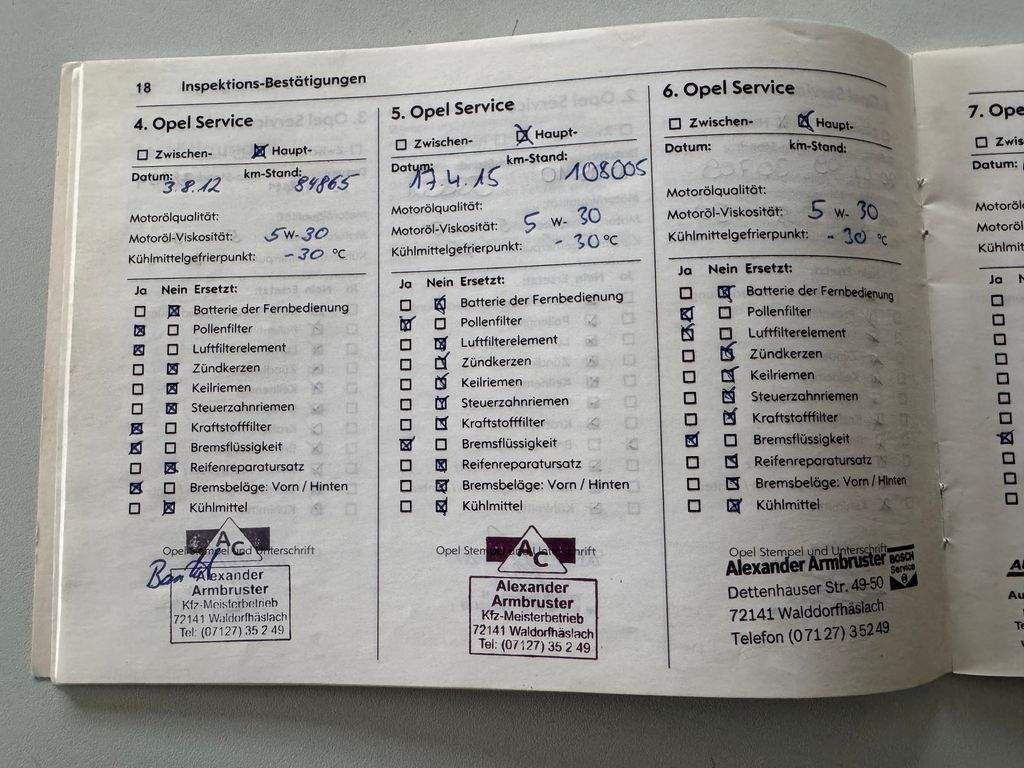 18 Inspektions-Bestätigungen
4. Opel Service
Zwischen- Haupt-
Datum: km-Stand:
3.8.12 84865
Motorölqualität:
Motoröl-Viskosität: 5 W- 30
Kühlmittelgefrierpunkt: - 30 °C
Ja Nein Ersetzt:
Batterie der Fernbedienung
Pollenfilter
Luftfilterelement
Zündkerzen
Keilriemen
Steuerzahnriemen
Kraftstofffilter
Bremsflüssigkeit
Reifenreparatursatz
Bremsbeläge: Vorn / Hinten
Kühlmittel
AC
Opel Stempel und Unterschrift
Alexander
Armbruster
Kfz-Meisterbetrieb
72141 Waldorfhäslach
Tel: (07127) 35 2 49
5. Opel Service
Zwischen- Haupt-
Datum: km-Stand:
17.4.15 108005
Motorölqualität:
Motoröl-Viskosität: 5 W- 30
Kühlmittelgefrierpunkt: - 30 °C
Ja Nein Ersetzt:
Batterie der Fernbedienung
Pollenfilter
Luftfilterelement
Zündkerzen
Keilriemen
Steuerzahnriemen
Kraftstofffilter
Bremsflüssigkeit
Reifenreparatursatz
Bremsbeläge: Vorn / Hinten
Kühlmittel
AC
Opel Stempel und Unterschrift
Alexander
Armbruster
Kfz-Meisterbetrieb
72141 Waldorfhäslach
Tel: (07127) 35 2 49
6. Opel Service
Zwischen- Haupt-
Datum: km-Stand:
Motorölqualität:
Motoröl-Viskosität: 5 W- 30
Kühlmittelgefrierpunkt: - 30 °C
Ja Nein Ersetzt:
Batterie der Fernbedienung
Pollenfilter
Luftfilterelement
Zündkerzen
Keilriemen
Steuerzahnriemen
Kraftstofffilter
Bremsflüssigkeit
Reifenreparatursatz
Bremsbeläge: Vorn / Hinten
Kühlmittel
Opel Stempel und Unterschrift
Alexander Armbruster BOSCH Service
Dettenhauser Str. 49-50
72141 Walddorfhäslach
Telefon (07127) 35249
7. Ope
Zwis
Datum:
Motorölq
Motoröl
Kühlmit
Ja N